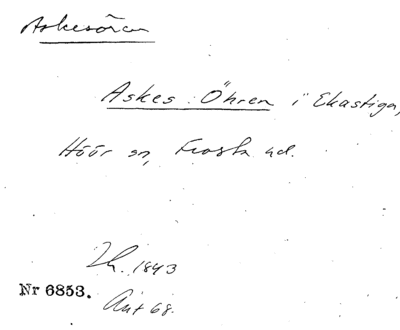 Askesören
Askes Öhren i Ekastiga,
Höör sn, Frosta hd.
Th. 1843
Nr 6853.
Ant 68.